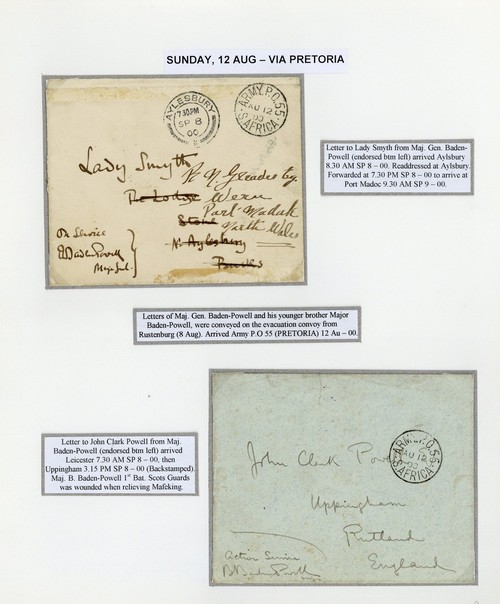 SUNDAY, 12 AUG – VIA PRETORIA
AYLESBURY
7.30PM
SP 8
00
ARMY P.O. 55
AU 12
00
S.AFRICA
Lady Smyth
The Lodge
Stone
Nr Aylesbury
Bucks
Wern
Port Madock
North Wales
On Service
BadenPowell
Maj. Genl.
Letter to Lady Smyth from Maj. Gen. Baden-
Powell (endorsed btm left) arrived Aylsbury
8.30 AM SP 8 – 00. Readdressed at Aylsbury.
Forwarded at 7.30 PM SP 8 – 00 to arrive at
Port Madoc 9.30 AM SP 9 – 00.
Letters of Maj. Gen. Baden-Powell and his younger brother Major
Baden-Powell, were conveyed on the evacuation convoy from
Rustenburg (8 Aug). Arrived Army P.O 55 (PRETORIA) 12 Au – 00.
Letter to John Clark Powell from Maj.
Baden-Powell (endorsed btm left) arrived
Leicester 7.30 AM SP 8 – 00, then
Uppingham 3.15 PM SP 8 – 00 (Backstamped).
Maj. B. Baden-Powell 1st Bat. Scots Guards
was wounded when relieving Mafeking.
ARMY P.O. 55
AU 12
00
S.AFRICA
John Clark Powell
Uppingham
Rutland
England
Active Service
B BadenPowell